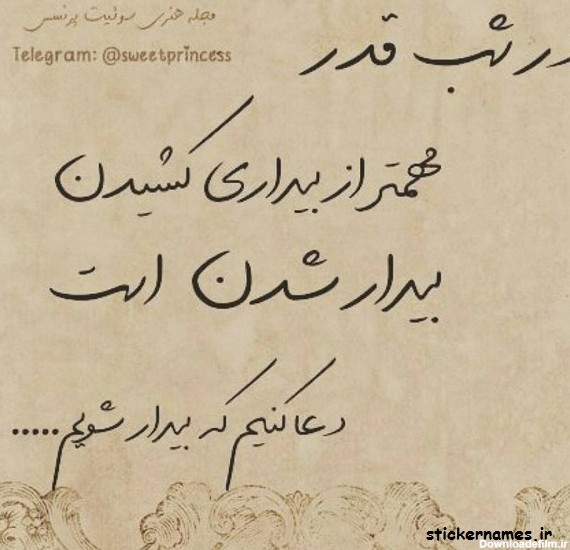 مجله هنری سوئیت پرنسس
Telegram: @sweetprincess
در شب قدر
مهمتر از بیداری کشیدن
بیدار شدن است
دعا کنیم که بیدار شویم.....
stickernames.ir
Downloadefilm.ir